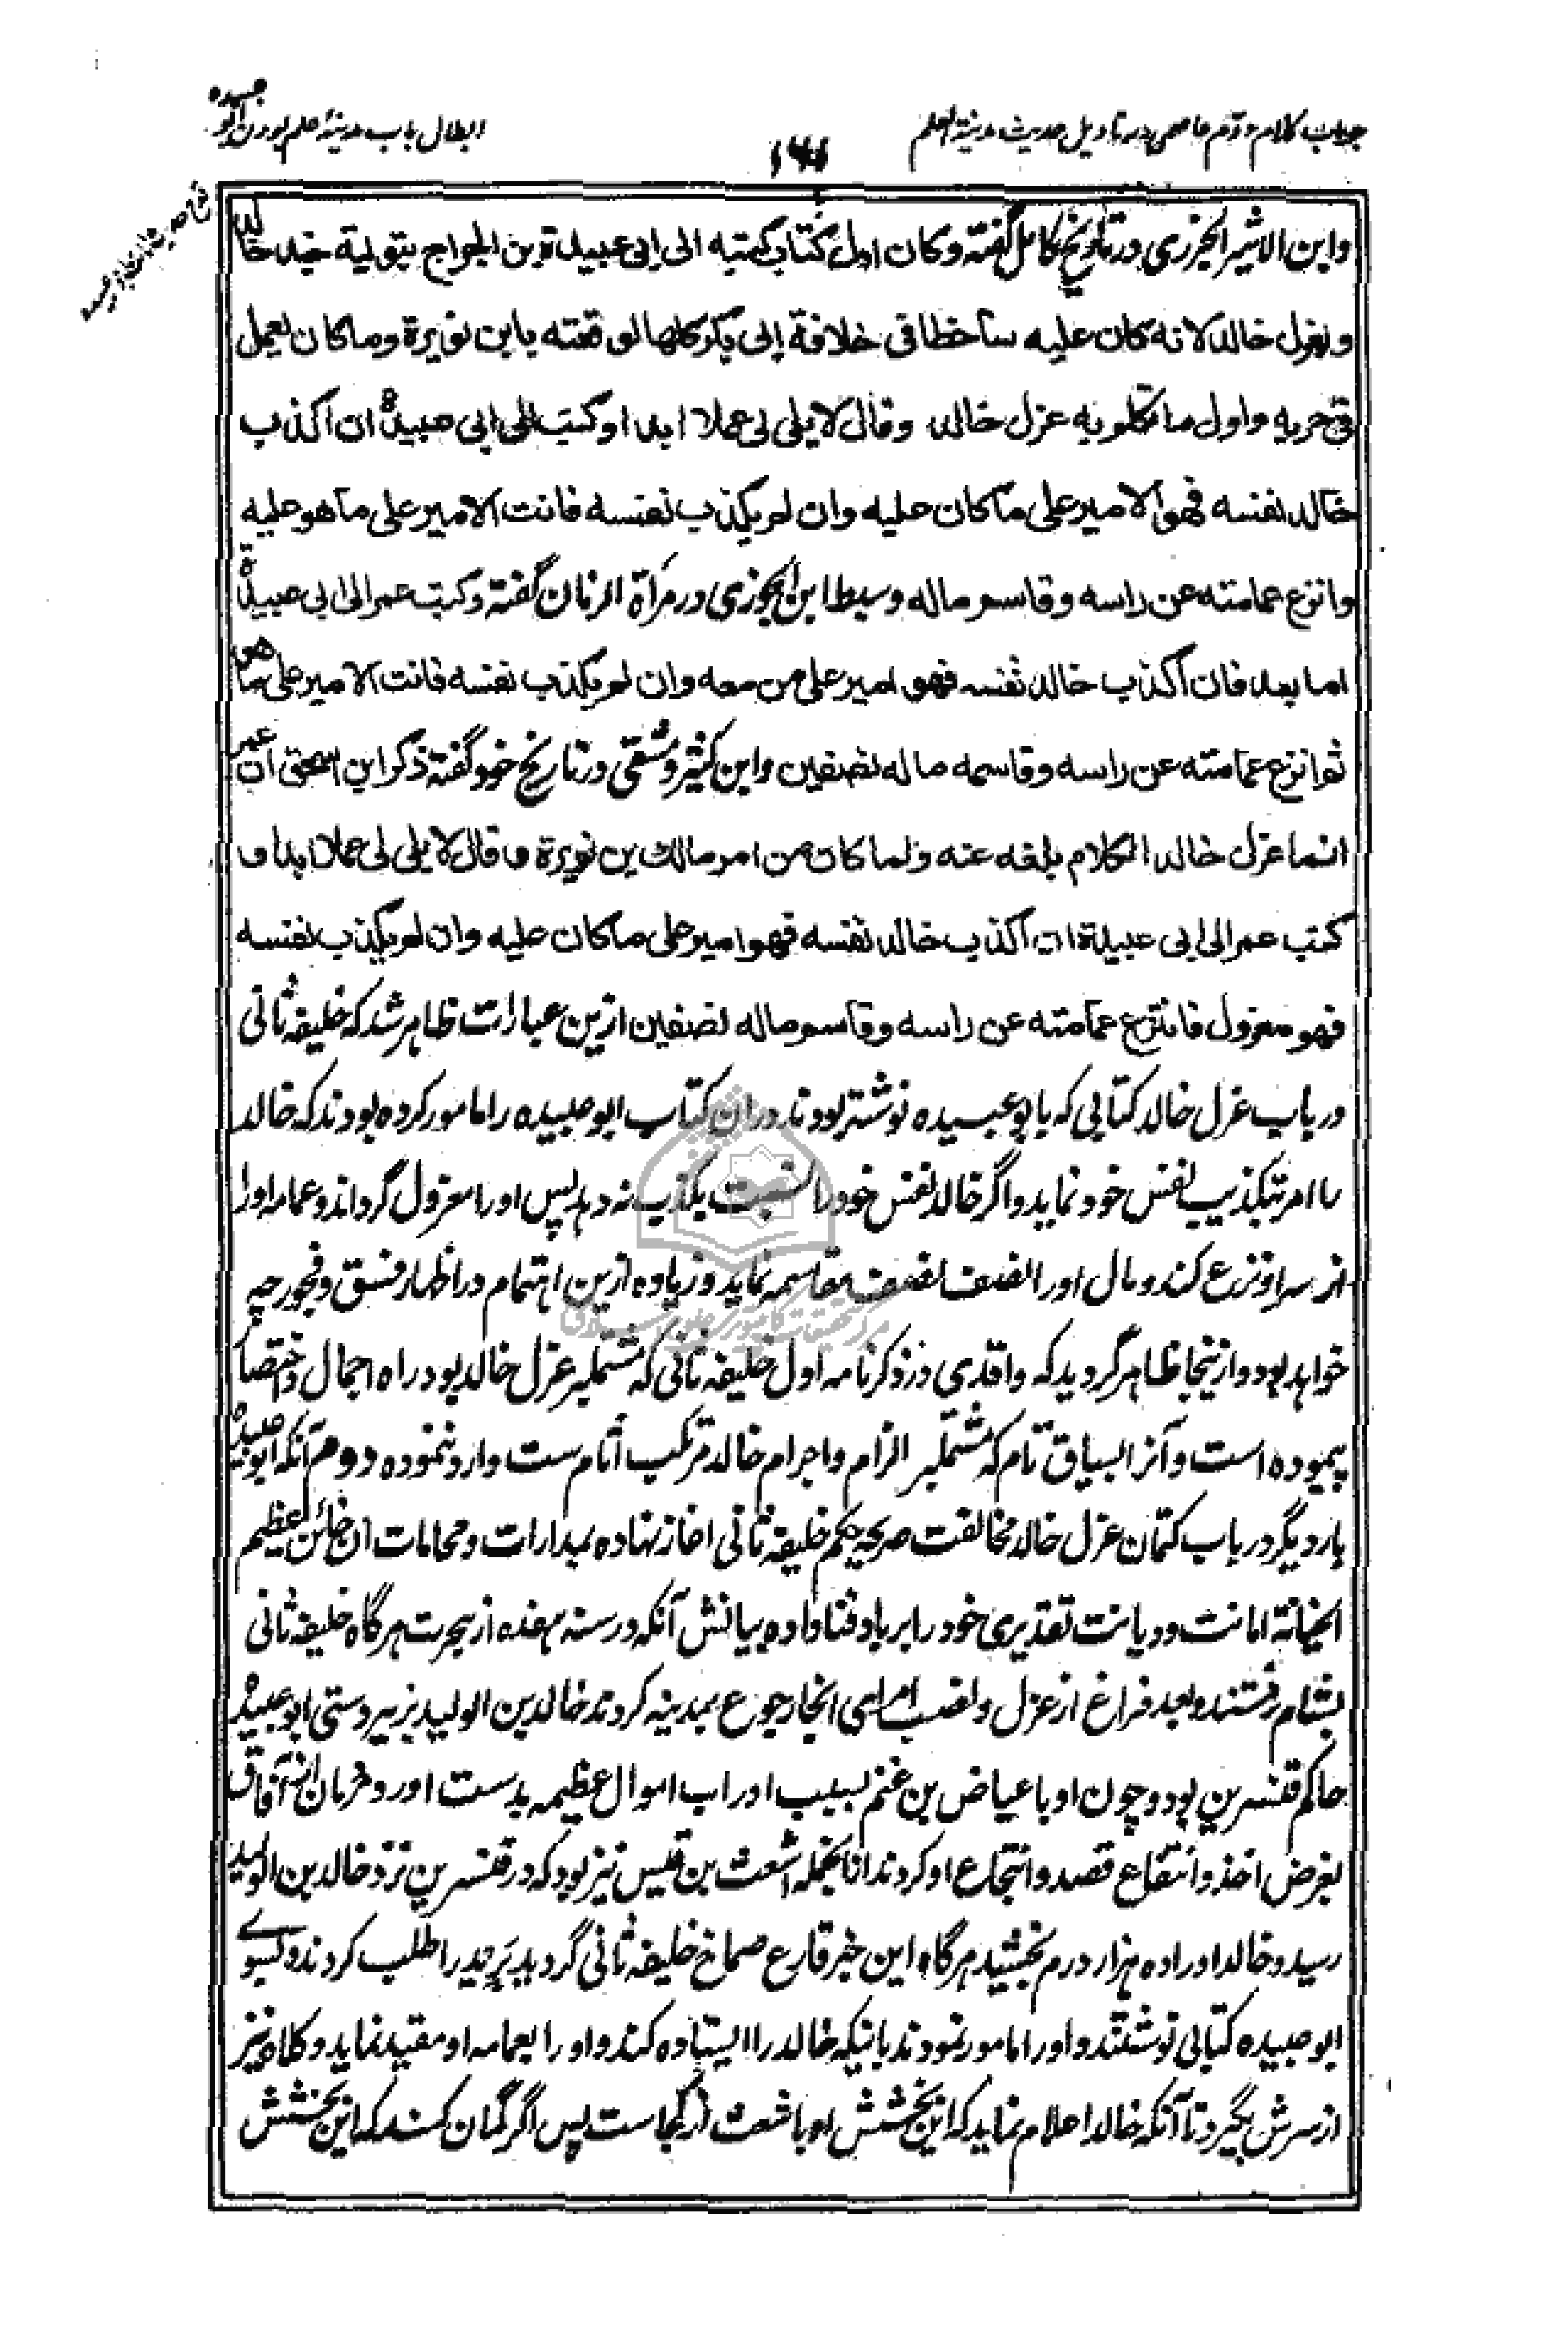 جواب کلام دوم عاصمی در تاویل حدیث مدینة العلم
۱۶۸۱
ابطال باب مدینهٔ علم بودن ابو عبیده
واین الاثیر الجزری در تاریخ کامل گفته وکان اول کتاب کتبه الی ابی عبیدة بن الجراح بتولیة جند خالد
وبعزل خالد لانه کان علیه ساخطا فی خلافة ابی بکر کلها لوقعته باین نویرة وما کان یعمل
فی حربه واول ما تکلم به عزل خالد وقال لا یلی لی عملا ابدا وکتب الی ابی عبیدة ان اکذب
خالد نفسه فهو الامیر علی ما کان علیه وان لم یکذب نفسه فانت الامیر علی ما هو علیه
وانزع عمامته عن راسه وقاسم ماله وسبط ابن الجوزی در مرآة الزمان گفته وکتب عمر الی ابی عبیدة
اما بعد فان اکذب خالد نفسه فهو امیر علی من معه وان لم یکذب نفسه فانت الامیر علی ما هو
ثم انزع عمامته عن راسه وقاسمه ماله نصفین واین کثیر دمشقی در تاریخ خود گفته ذکر این اسحق ان عمر
انما عزل خالدا لکلام بلغه عنه ولما کان من امر مالک بن نویرة وقال لا یلی لی عملا ابدا و
کتب عمر الی ابی عبیدة ان اکذب خالد نفسه فهو امیر علی ما کان علیه وان لم یکذب نفسه
فهو معزول فانتزع عمامته عن راسه وقاسم ماله نصفین ازین عبارات ظاهر شد که خلیفهٔ ثانی
در باب عزل خالد کتابی که بابو عبیده نوشته بودند دران کتاب ابو عبیده را مامور کرده بودند که خالد
را امر بتکذیب نفس خود نماید واگر خالد نفس خود را نسبت بکذب نه دهد پس او را معزول گرداند وعمامه او را
از سر او نزع کند ومال او را نصف نصف مقاسمه نماید وزیاده ازین اهتمام در اظهار فسق وفجور چه
خواهد بود واز ینجا ظاهر گردید که واقدی در ذکر نامه اول خلیفهٔ ثانی که مشتمل بر عزل خالد بود راه اجمال واختصار
پیموده است وآنرا بسیاق تام که مشتمل بر الزام واجرام خالد مرتکب آثام ست وارد ننموده دوم آنکه ابو عبیده
بار دیگر در باب کتمان عزل خالد مخالفت صریحه حکم خلیفهٔ ثانی اغاز نهاده بمدارات ومحامات آن خائن عظیم
الخیانة امانت ودیانت تقدیری خود را بر باد فنا داده بیانش آنکه در سنه هفده از هجرت هرگاه خلیفهٔ ثانی
بشام رفتند وبعد فراغ از عزل ونصب امرای انجا رجوع بمدینه کردند خالد بن الولید بزیر دستی ابو عبیده
حاکم قنسرین بود وچون او با عیاض بن غنم بسبب ادراب اموال عظیمه بدست اورد ومردمان از آفاق
بغرض اخذ وانتفاع قصد وانتجاع او کردند ازانجمله اشعث بن قیس نیز بود که در قنسرین نزد خالد بن الولید
رسید وخالد او را ده هزار درم بخشید هرگاه این خبر قارع صماخ خلیفهٔ ثانی گردید برید را طلب کردند وبسوے
ابو عبیده کتابی نوشتند واو را مامور نمودند باینکه خالد را ایستاده کند واو را بعمامه او مقید نماید وکلاه نیز
از سرش بگیرد تا آنکه خالد اعلام نماید که این بخشش او باشعث از کجاست پس اگر گمان کند که این بخشش